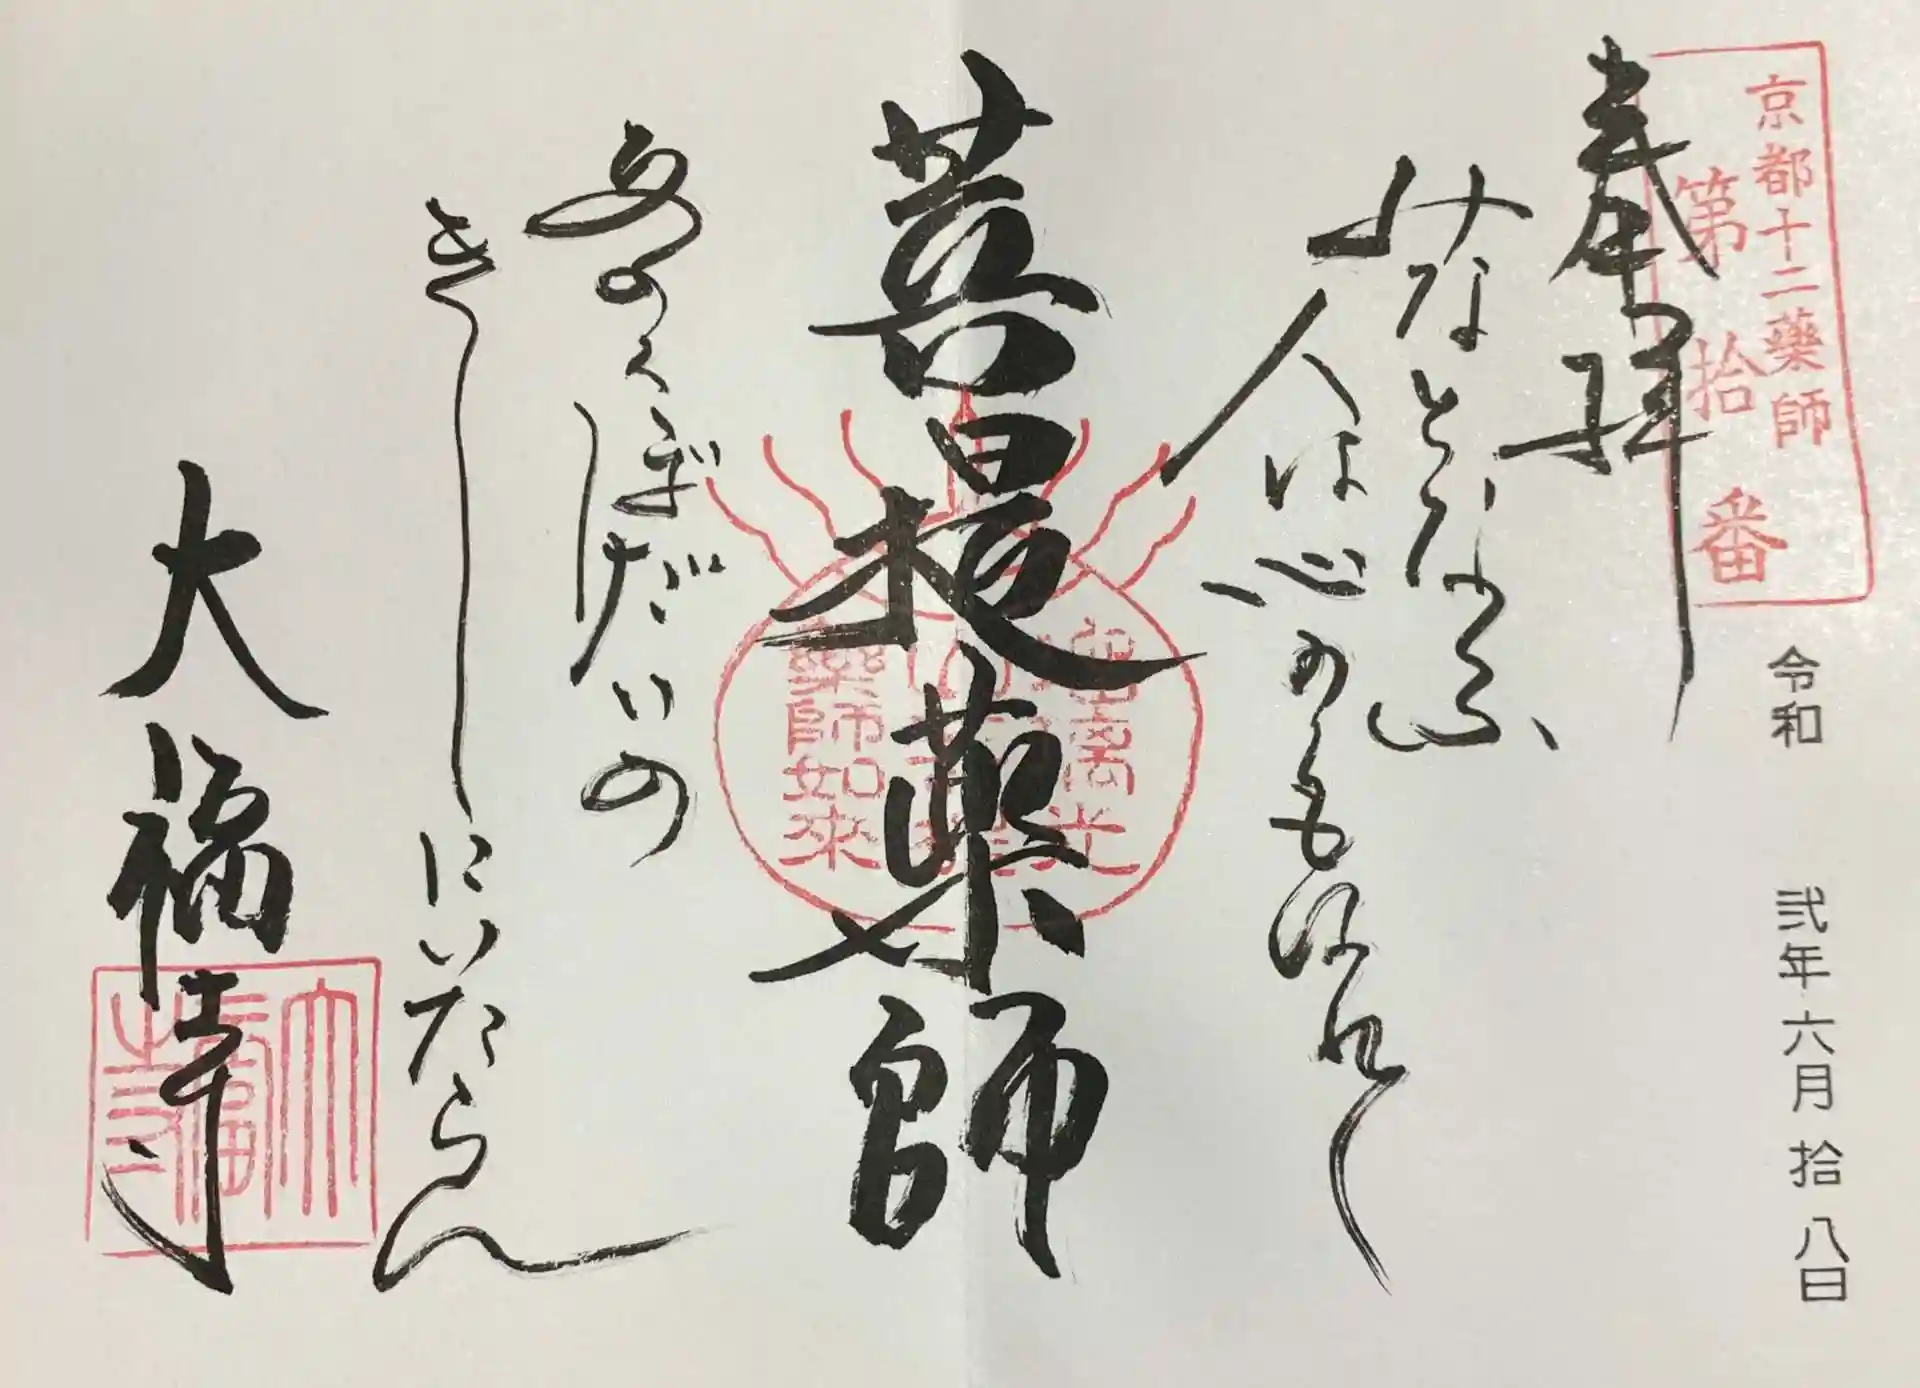 京都十二藥師
第拾番
令和 弐年六月拾八日
奉拝
なとなふ
人は心のくもはれて
菩提薬師
藥師如來
ぼだいの
きしにいたらん
大福寺
大福寺